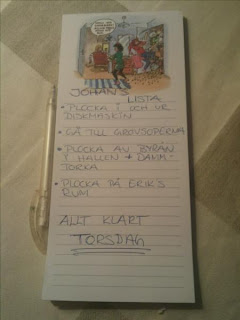 JOHAN'S
LISTA
• PLOCKA I OCH UR
DISKMASKIN
• GÅ TILL GROVSOPERNA
• PLOCKA AV BYRÅN
I HALLEN + DAMM-
TORKA
• PLOCKA PÅ ERIKS
RUM
ALLT KLART
TORSDAG